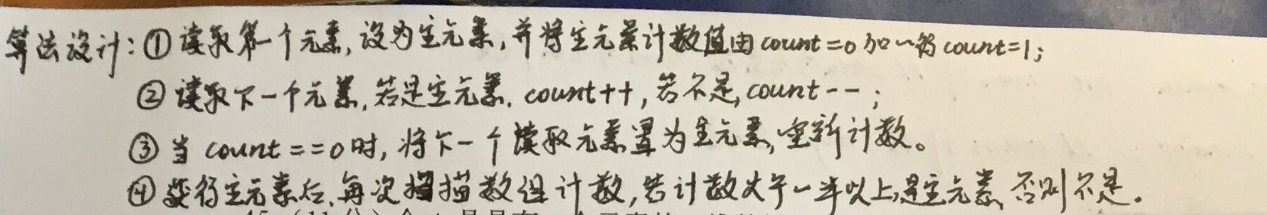 算法设计:①读取第一个元素,设为主元素,并将主元素计数值由count=0加一为count=1;
②读取下一个元素,若是主元素,count++,若不是,count--;
③当count==0时,将下一个读取元素置为主元素,重新计数。
④获得主元素后,再次扫描数组计数,若计数大于一半以上,是主元素,否则不是。